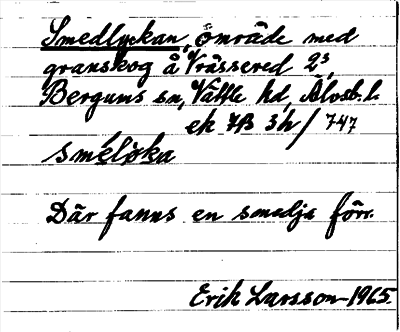 Smedlyckan, område med
granskog å Vrässered 2³,
Bergums sn, Vättle hd, Älvsb. l.
ek 7B 3h / 747
smèlọ̀ka
Där fanns en smedja förr.
Erik Larsson 1965.